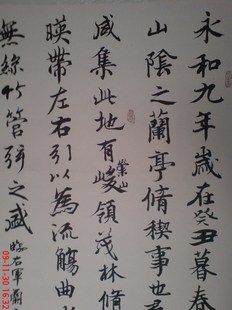 永和九年歲在癸丑暮春
山陰之蘭亭脩稧事也
咸集此地有崇山峻領茂林脩
暎帶左右引以為流觴曲
無絲竹管弦之盛
臨右軍蘭
09-11-30 16:32